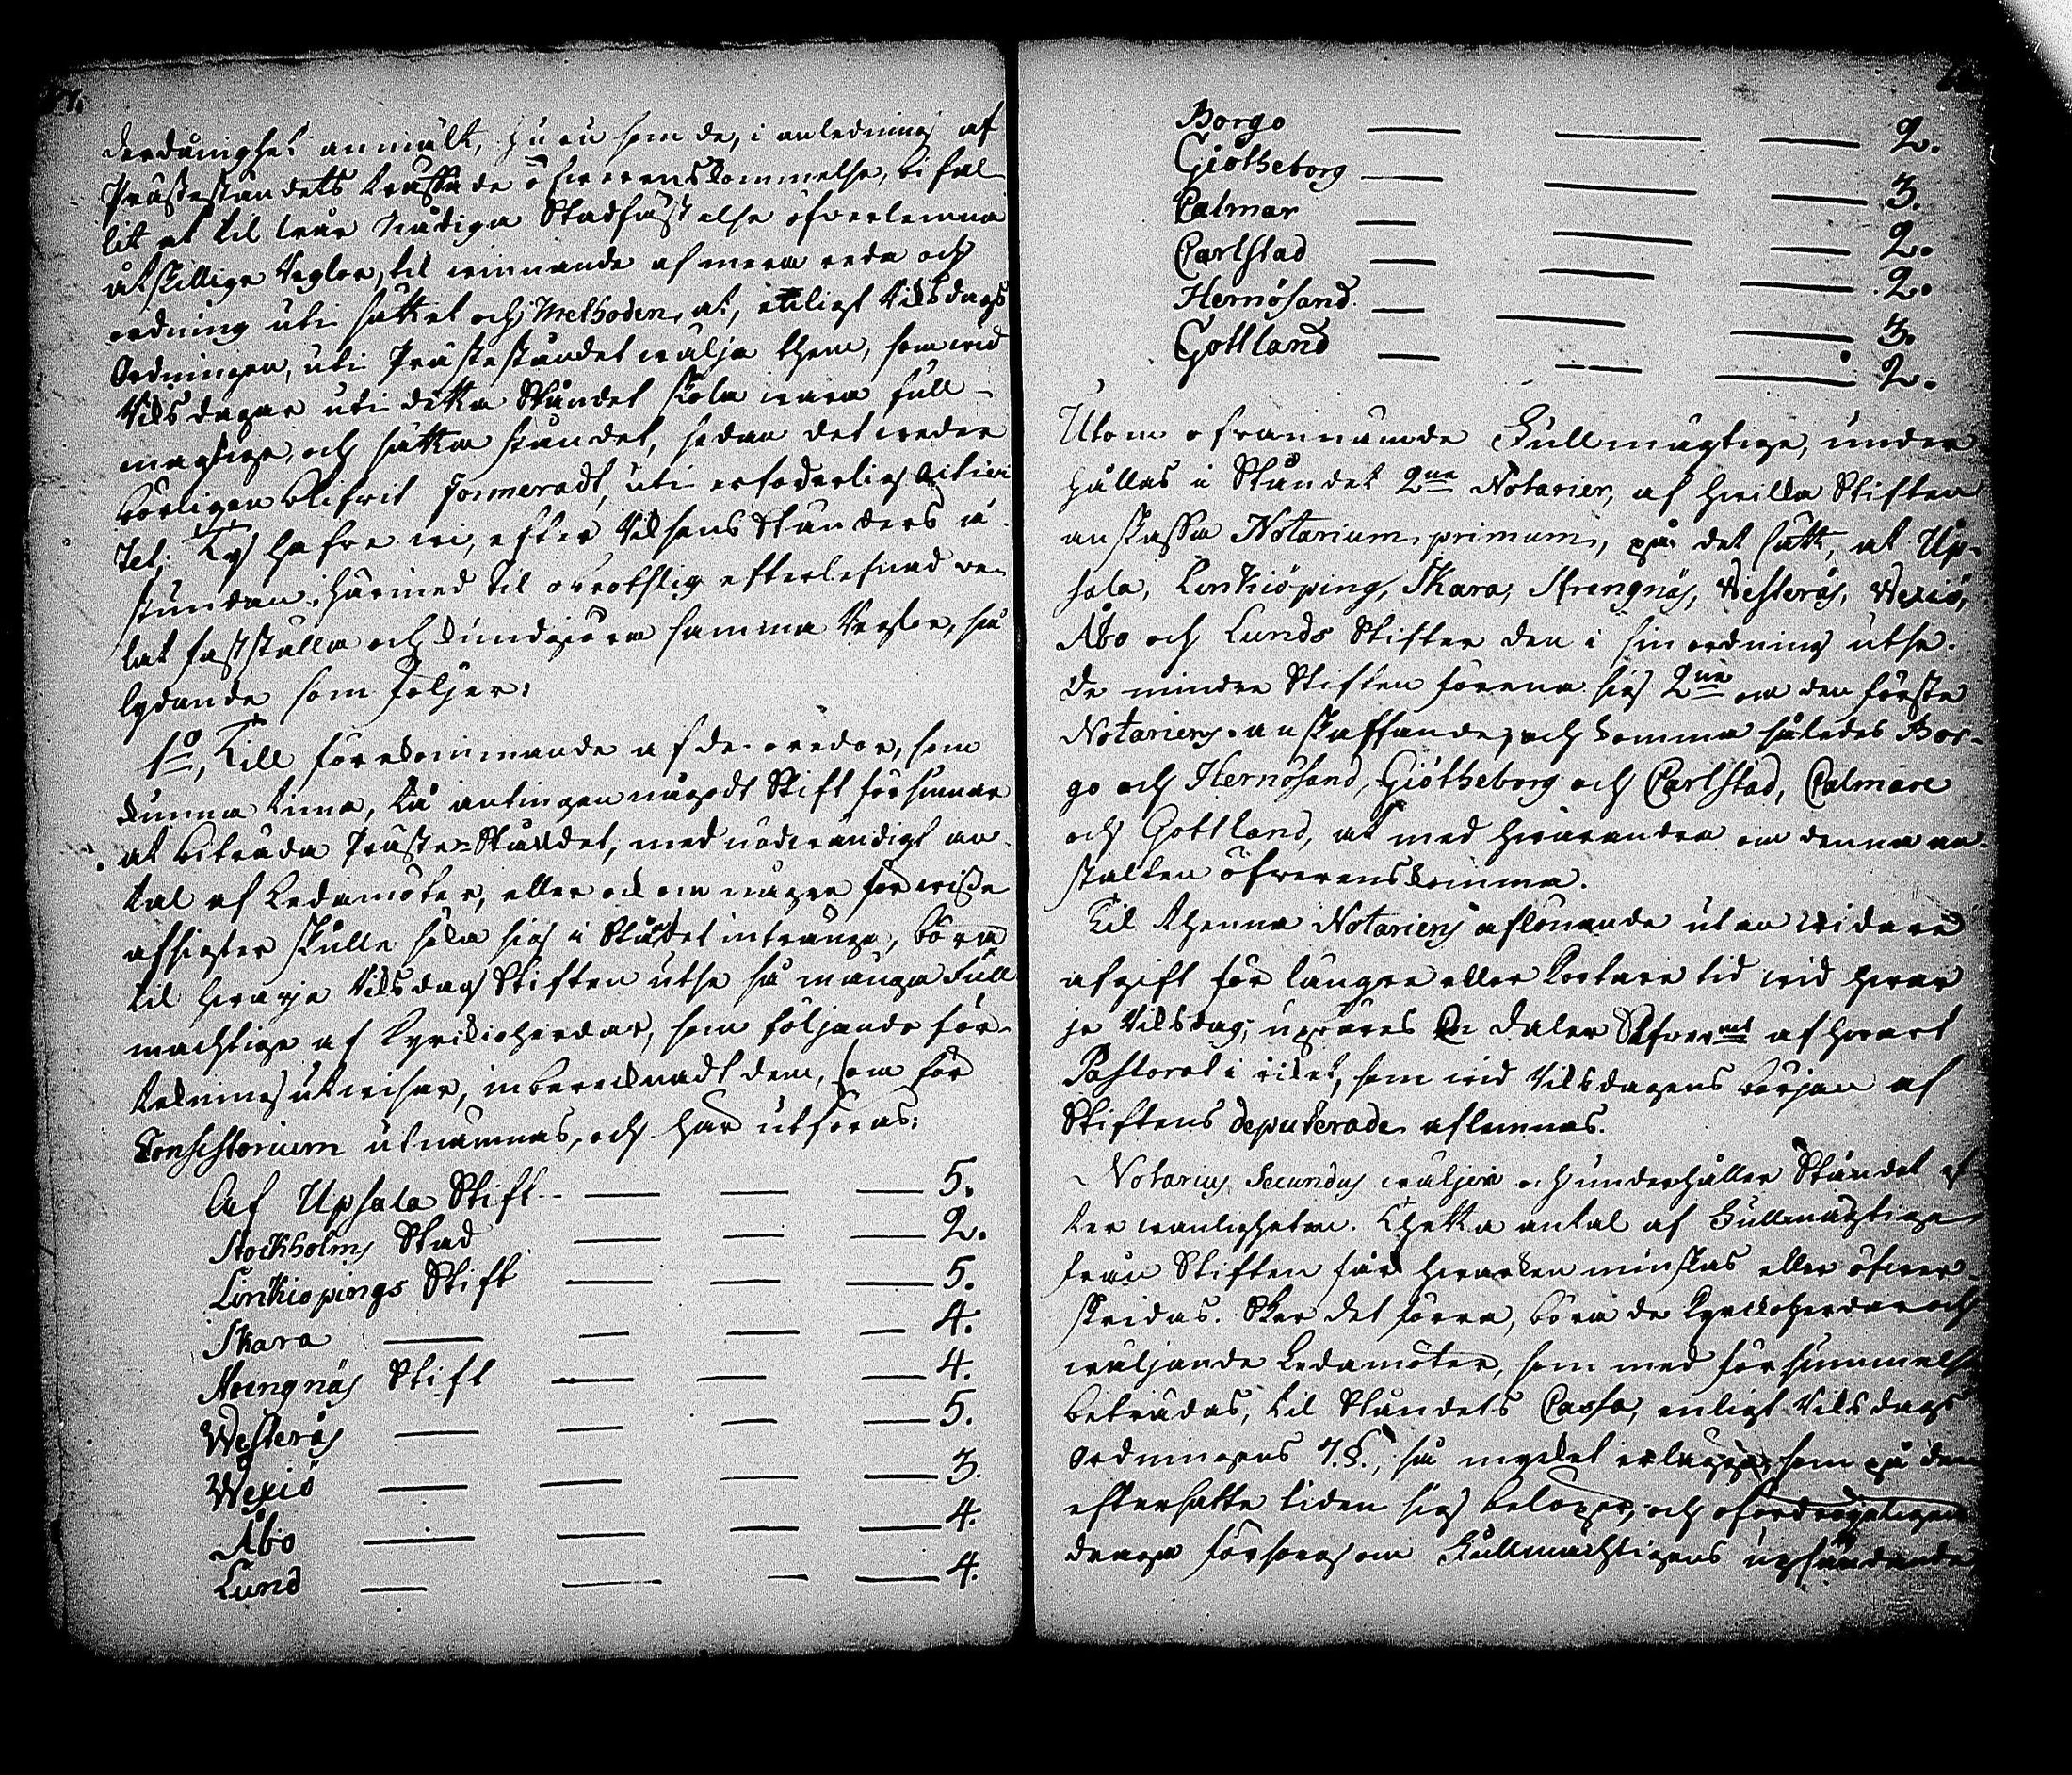 derdånighet anmält, huru som de, i anledning af
Prästeståndets träffade öfwerenskommelse, bifal-
lit at til wår nådiga Stadfästelse öfwerlemna
åtskillige Reglor, til winnande af mera reda och
ordning uti sättet och Methoden, at, enligt Riksdags
Ordningen, uti Prästeståndet wälja them, som wid
Riksdagar uti detta Ståndet skola wara full-
magtige, och sätta ståndet, sedan det wederbörligen
börligen blifwit formeradt, uti erfoderlig activi
tet; Ty hafwe wi, efter Riksens Ständers å-
stundan, härmed til orotslig efterlefnad we-
lat fastställa och kundgöra samma Reglor, så
lydande som följer:
1o, Till förekommande af de oredor, som
kunna tima, då antingen någodt Stift försummar
at biträda Präste-Ståndet, med nödwändigt an-
tal af Ledamöter, eller ock om någre för wisse
afsigter skulle söka sig i Ståndet intränga, böra
til hwarje Riksdag Stiften utse så många Full
mächtige af Kyrkioherdar, som följande för-
tekning utwisar, inberäknadt dem, som för
Consistorium utnämnas, och här utföras:
Af Upsala Stift — — — 5.
Stockholms Stad — — — 2.
Linkiöpings Stift — — — 5.
Skara — — — — 4.
Strengnäs Stift — — — 4.
Westerås — — — — 5.
Wexiö — — — — 3.
Åbo — — — — 4.
Lund — — — — 4.
Borgo — — — 2.
Giötheborg — — — 3.
Calmar — — — 2.
Carlstad — — — 2.
Hernösand — — — 3.
Gottland — — — 2.
Utom ofwannämde Fullmägtige, under
hållas i Ståndet 2ne Notarier, af hwilka Stiften
anskaffa Notarium primum, på det sätt, at Up-
sala, Linkiöping, Skara, Strengnäs, Westerås, Wexiö,
Åbo och Lunds Stifter den i sin ordning utse.
De mindre Stiften förena sig 2ne om den förste
Notariens anskaffande, och komma således Bor-
go och Hernösand, Giötheborg och Carlstad, Calmare
och Gottland, at med hwarandra om denna an-
stalten öfwerenskomma.
Til thenna Notariens aflönande utan widare
afgift för längre eller kortare tid wid hwar
je Riksdag, upbäres En daler Silfwermt af hwart
Pastorat i riket, som wid Riksdagens början af
Stiftens deputerade aflemnas.
Notarius Secundus wäljer och underhåller Ståndet ef
ter wanligheten. Thetta antal af Fullmägtige
från Stiften får hwarken minskas eller öfwer-
skridas. Sker det förra, böra de Kyrckoherdar och
wäljande Ledamöter, som med försummelse
beträdas, til Ståndets Cassa, enligt Riksdags
Ordningens 7.§., så mycket erlägga, som på den
eftersatte tiden sig belöper, och ofördrögeligen
draga försorg om Fullmächtigens upsändande,